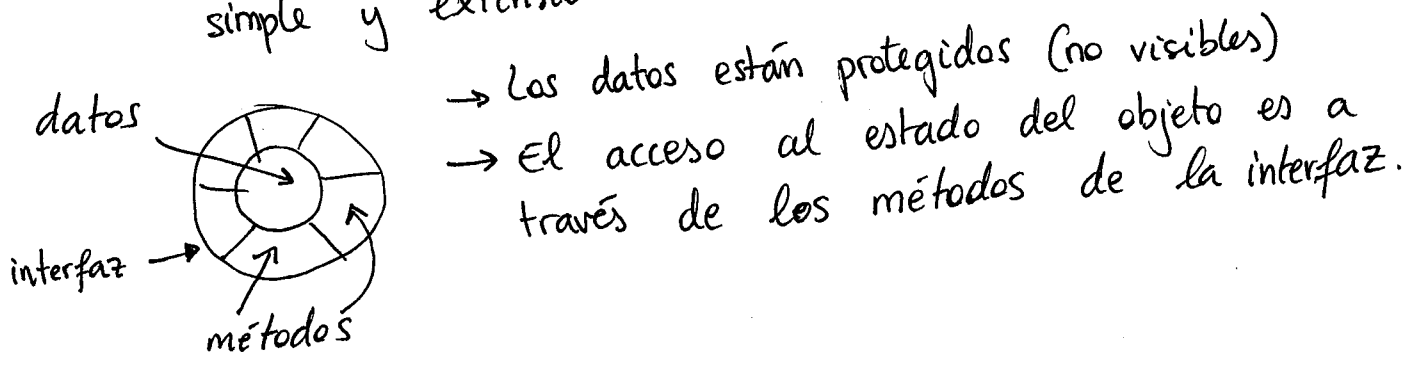 simple y
→ Los datos están protegidos (no visibles)
→ El acceso al estado del objeto es a
través de los métodos de la interfaz.
datos
interfaz
métodos